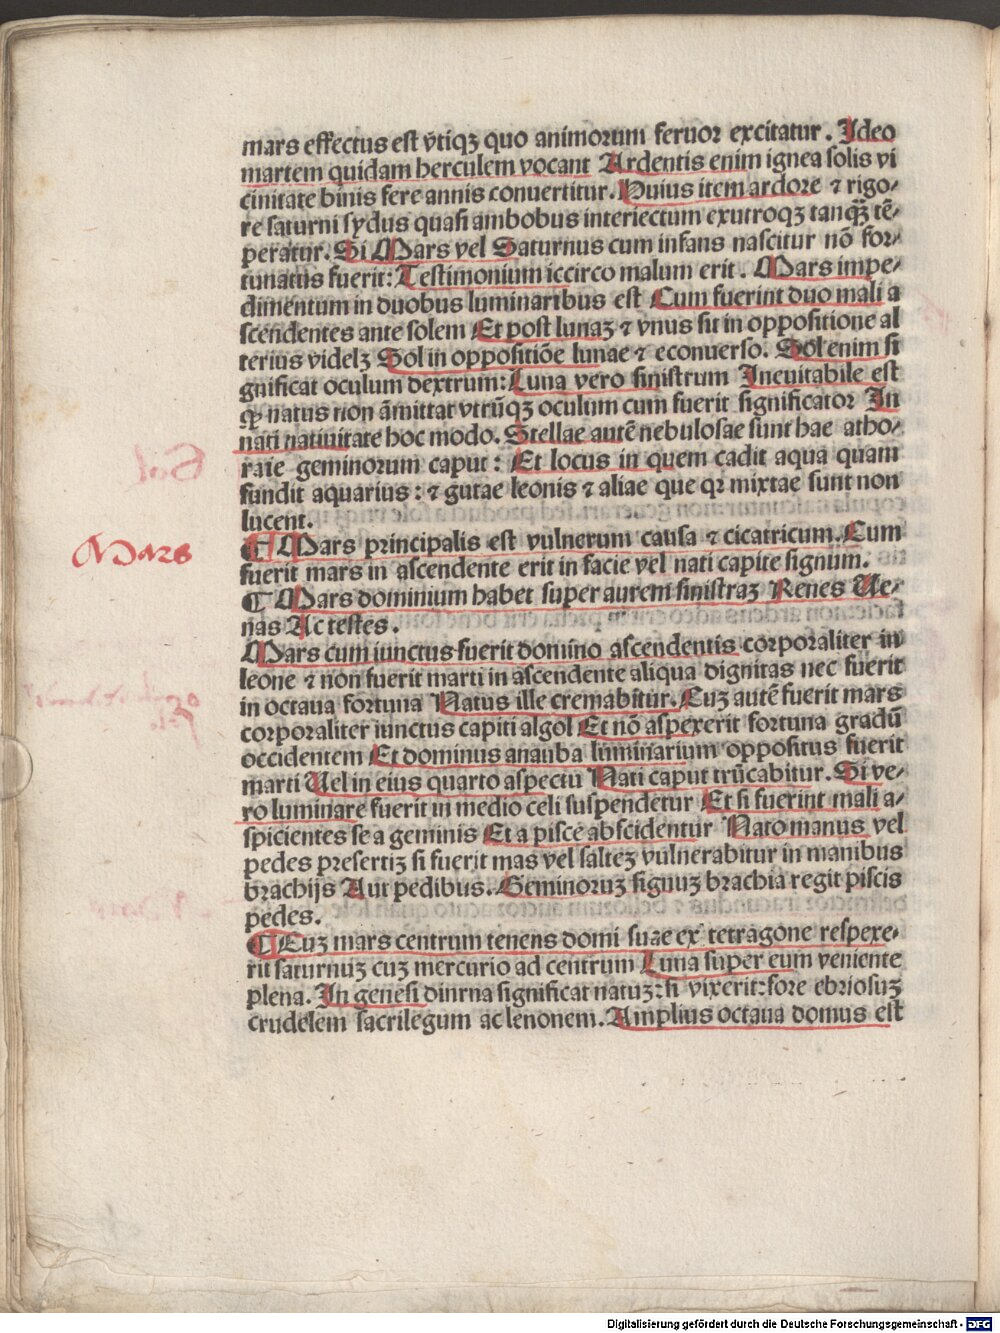 mars effectus est v̄tiqꝫ quo animorum feruor excitatur. Ideo
martem quidam herculem vocant Ardentis enim ignea solis vi
cinitate binis fere annis conuertitur. Huius item ardore ⁊ rigo-
re saturni sydus quasi ambobus interiectum exutroqꝫ tanqꝫ̄ tē-
peratur. Si Mars vel Saturnus cum infans nascitur nō for-
tunatus fuerit: Testimonium iccirco malum erit. Mars impe-
dimentum in duobus luminaribus est Cum fuerint duo mali a
scendentes ante solem Et post lunaꝫ ⁊ vnus sit in oppositione al
terius videlꝫ Sol in oppositiōe lunae ⁊ econuerso. Sol enim si
gnificat oculum dextrum: Luna vero sinistrum Ineuitabile est
ꝙ natus non āmittat vtrūqꝫ oculum cum fuerit significator In
nati natiuitate hoc modo. Stellae autē nebulosae sunt hae atho-
raie geminorum caput: Et locus in quem cadit aqua quam
fundit aquarius: ⁊ gutae leonis ⁊ aliae que qꝛ mixtae sunt non
lucent.
Mars
¶ Mars principalis est vulnerum causa ⁊ cicatricum. Cum
fuerit mars in ascendente erit in facie vel nati capite signum.
¶ Mars dominium habet super aurem sinistraꝫ Renes Ue-
nas Ac testes.
Mars cum iunctus fuerit domino ascendentis corporaliter in
leone ⁊ non fuerit marti in ascendente aliqua dignitas nec fuerit
in octaua fortuna Natus ille cremabitur. Cuꝫ autē fuerit mars
corporaliter iunctus capiti algol Et nō aspexerit fortuna gradū
occidentem Et dominus anauba luminarium oppositus fuerit
marti Uel in eius quarto aspectu Nati caput trūcabitur. Si ve-
ro luminare fuerit in medio celi suspendetur Et si fuerint mali a-
spicientes se a geminis Et a pisce abscidentur Nato manus vel
pedes presertiꝫ si fuerit mas vel salteꝫ vulnerabitur in manibus
brachijs Aut pedibus. Geminoruꝫ signuꝫ brachia regit piscis
pedes.
¶ Cuꝫ mars centrum tenens domi suae ex tetragone respexe-
rit saturnuꝫ cuꝫ mercurio ad centrum Luna super eum veniente
plena. In genesi diurna significat natuꝫ: si vixerit: fore ebriosuꝫ
crudelem sacrilegum ac lenonem. Amplius octaua domus est
Digitalisierung gefördert durch die Deutsche Forschungsgemeinschaft - DFG